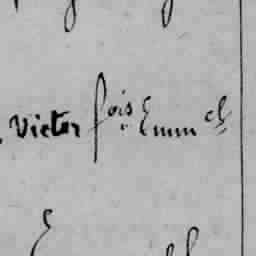 Victor fois Emm el